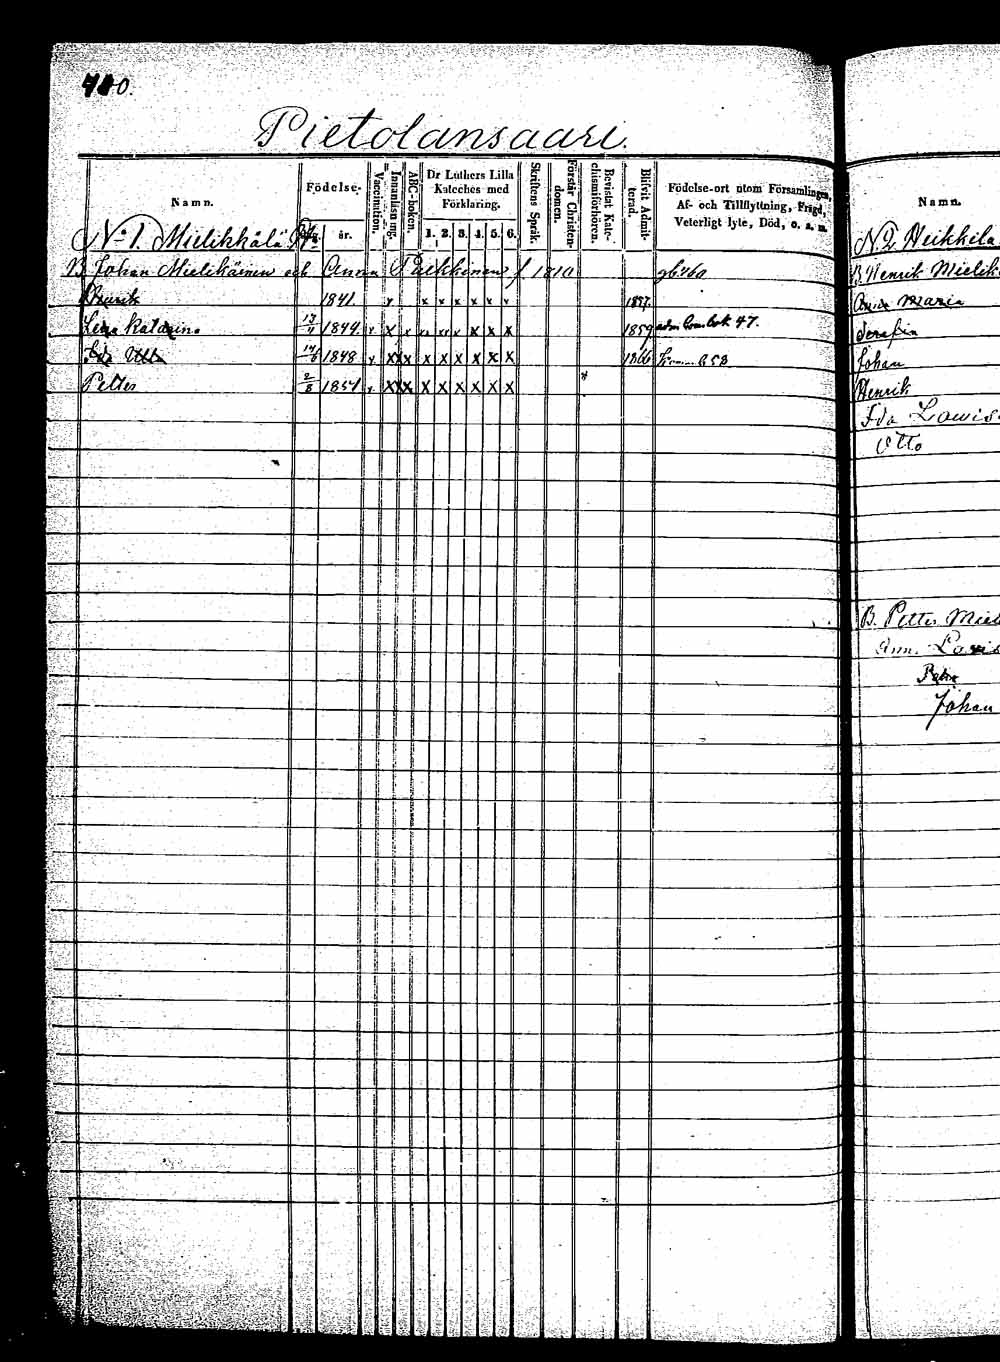 Pietolansaari.
Namn.
Födelse-
år.
Vaccination.
Innanläsning.
ABC-boken.
Dr Luthers Lilla
Kateches med
Förklaring.
1. 2. 3. 4. 5. 6.
Skriftens Språk.
Förstår Christen-
domen.
Bevistat Kate-
chismiförhören.
Blifvit Admit-
terad.
Födelse-ort utom Församlingen,
Af- och Tillflyttning, Frägd,
Veterligt lyte, Död, o. s. m.
No 1. Mielikkälä
B Johan Mielikäinen och Anna Pulkkinen f 1810
Henrik 1841. x x x x x x x 1857.
Lena Katarina 13/11 1844. x x x x x x x x 1859 47.
Ida Ulla 14/6 1848 x x x x x x x x x 1866
Petter 2/8 1851 x x x x x x x x x
Namn.
N 2. Heikkilä
B. Henrik Mielik
Anna Maria
Serafia
Johan
Henrik
Ida Lowis
Otto
B. Petter Miel
Ann. Lovis
Johan